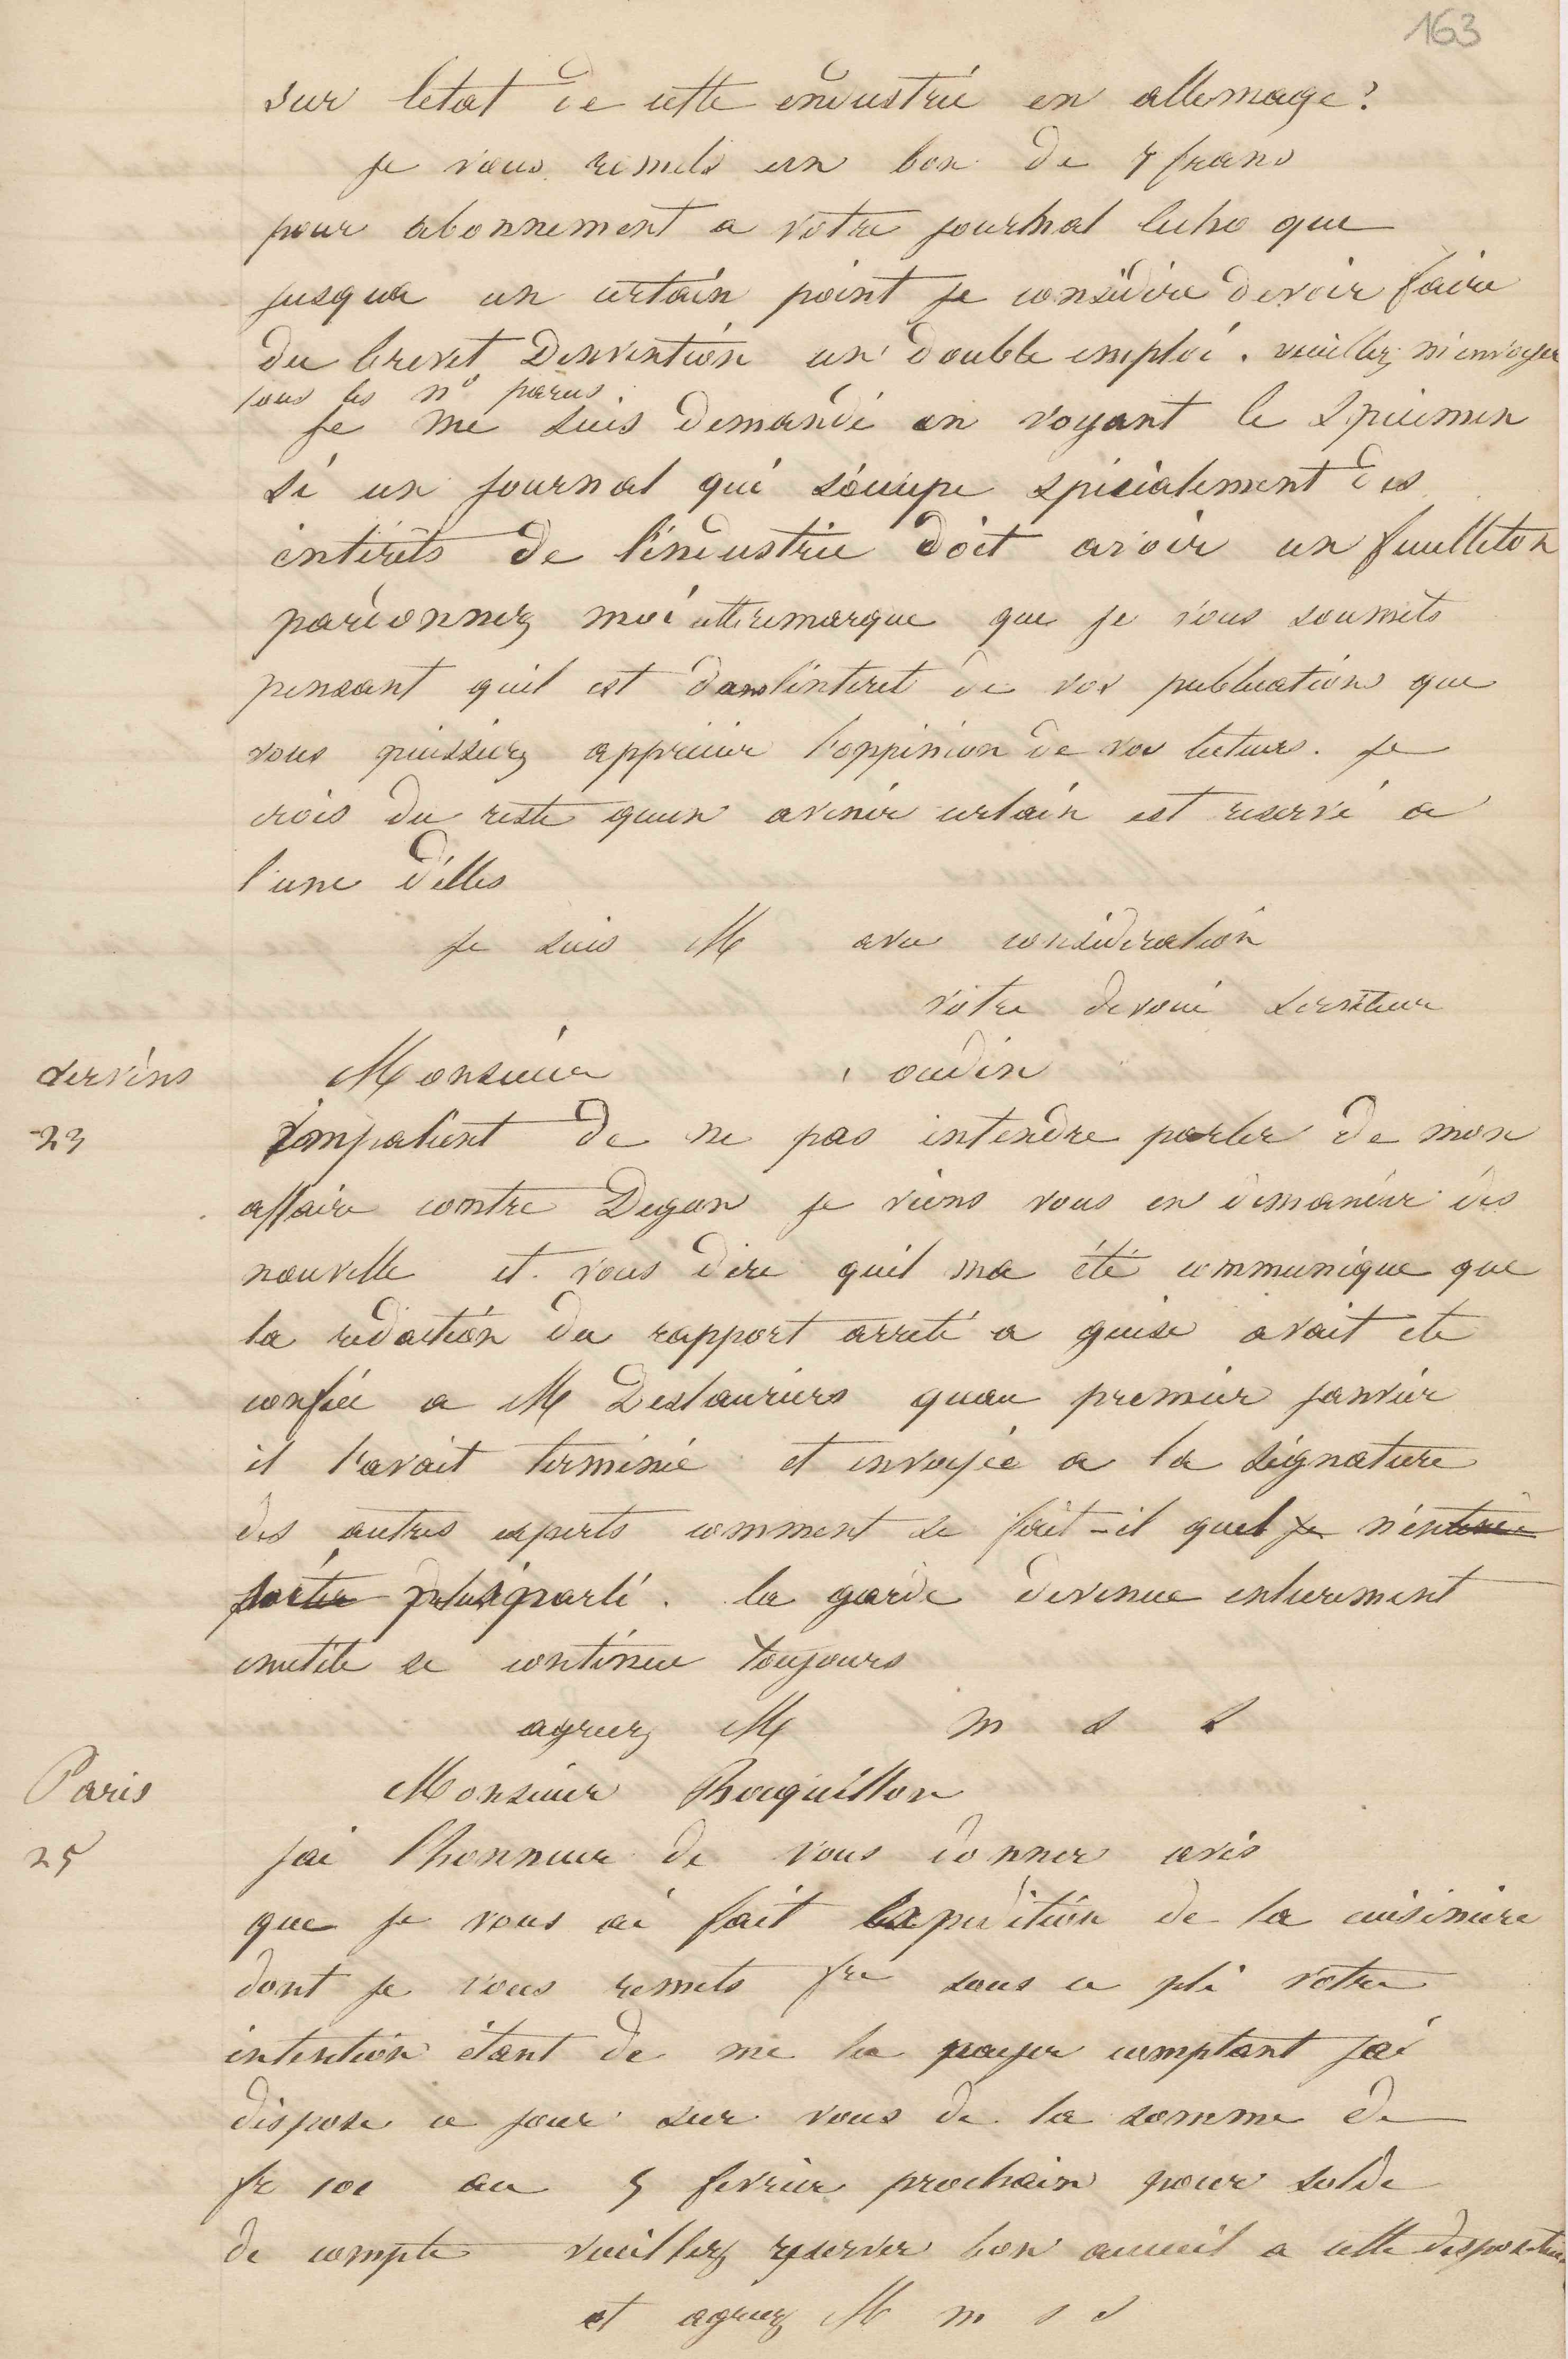 163
sur letat de cette industrie en allemage?
je vous remets un bon de 7 frans
pour abonnement a votre journal lecho que
jusqua un certain point je considère devoir faire
du brevet Dinvention un double emploi. veuillez m'envoyer
tous les nos parus
Je me suis demandé en voyant le Spécimen
si un journal qui s'ocupe spécialement des
intérêts de l'industrie doit avoir un feuilleton
pardonnez moi cette remarque que je vous soumets
pensant quil est dans linteret de vos publications que
vous puissiez apprécier l'oppinion de vos lecteurs. je
crois du reste quun avenir certain est reservé a
l'une d'elles
Je suis M avec considération
votre devoué serviteur
Vervins Monsieur oudin
23 Impatient de ne pas entendre parler de mon
affaire contre Degon je viens vous en demander des
nouvelle et vous dire quil ma été communique que
la rédaction du rapport arreté a guise avait ete
confiée a M Deslauriers quau premier janvier
il l'avait terminée et envoyée a la signature
des autres experts comment se fait-il quel je n'entende
parler plus parlé. la garde devenue entierement
inutile se continue toujours
agreez M m s s
Paris Monsieur Rouquillon
25 jai l'honneur de vous donner avis
que je vous ai fait lexpedition de la cuisinière
dont je vous remets fre sous ce pli votre
intention étant de me la payer comptant jai
dispose ce jour sur vous de la somme de
fr 101 au 5 fevrier prochain pour solde
de compte veuillez reserver bon acceuil a cette disposition
et agreez M m s s